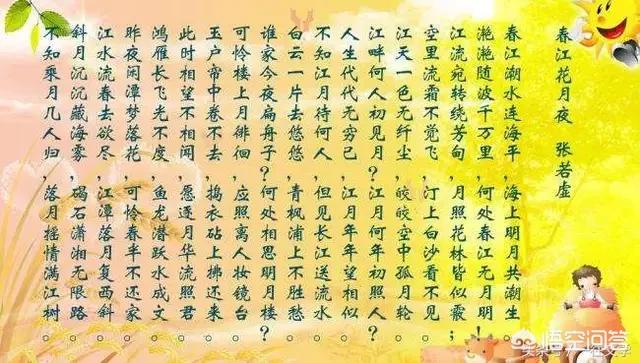 春江花月夜 张若虚
春江潮水连海平,海上明月共潮生。
滟滟随波千万里,何处春江无月明!
江流宛转绕芳甸,月照花林皆似霰;
空里流霜不觉飞,汀上白沙看不见。
江天一色无纤尘,皎皎空中孤月轮。
江畔何人初见月?江月何年初照人?
人生代代无穷已,江月年年望相似。
不知江月待何人,但见长江送流水。
白云一片去悠悠,青枫浦上不胜愁。
谁家今夜扁舟子?何处相思明月楼?
可怜楼上月徘徊,应照离人妆镜台。
玉户帘中卷不去,捣衣砧上拂还来。
此时相望不相闻,愿逐月华流照君。
鸿雁长飞光不度,鱼龙潜跃水成文。
昨夜闲潭梦落花,可怜春半不还家。
江水流春去欲尽,江潭落月复西斜。
斜月沉沉藏海雾,碣石潇湘无限路。
不知乘月几人归,落月摇情满江树。
悟空问答